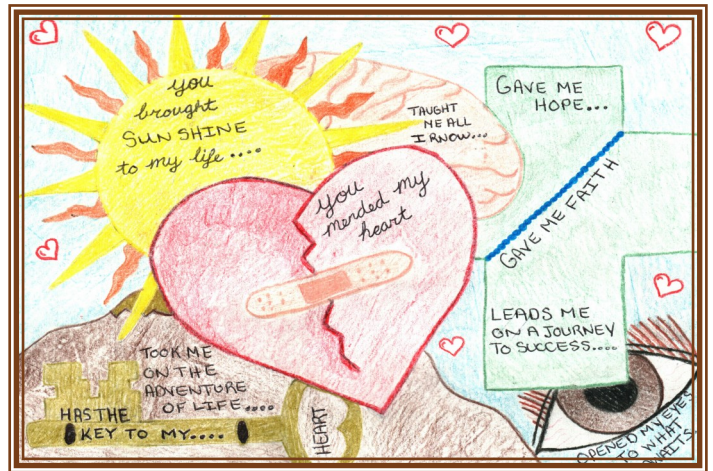 you
brought
SUNSHINE
to my life ....
TAUGHT
ME ALL
I KNOW...
GAVE ME
HOPE...
you
mended my
heart
GAVE ME FAITH
LEADS ME
ON A JOURNEY
TO SUCCESS....
TOOK ME
ON THE
ADVENTURE
OF LIFE....
HAS THE
KEY TO MY....
HEART
OPENED MY EYES
TO WHAT
WAITS.